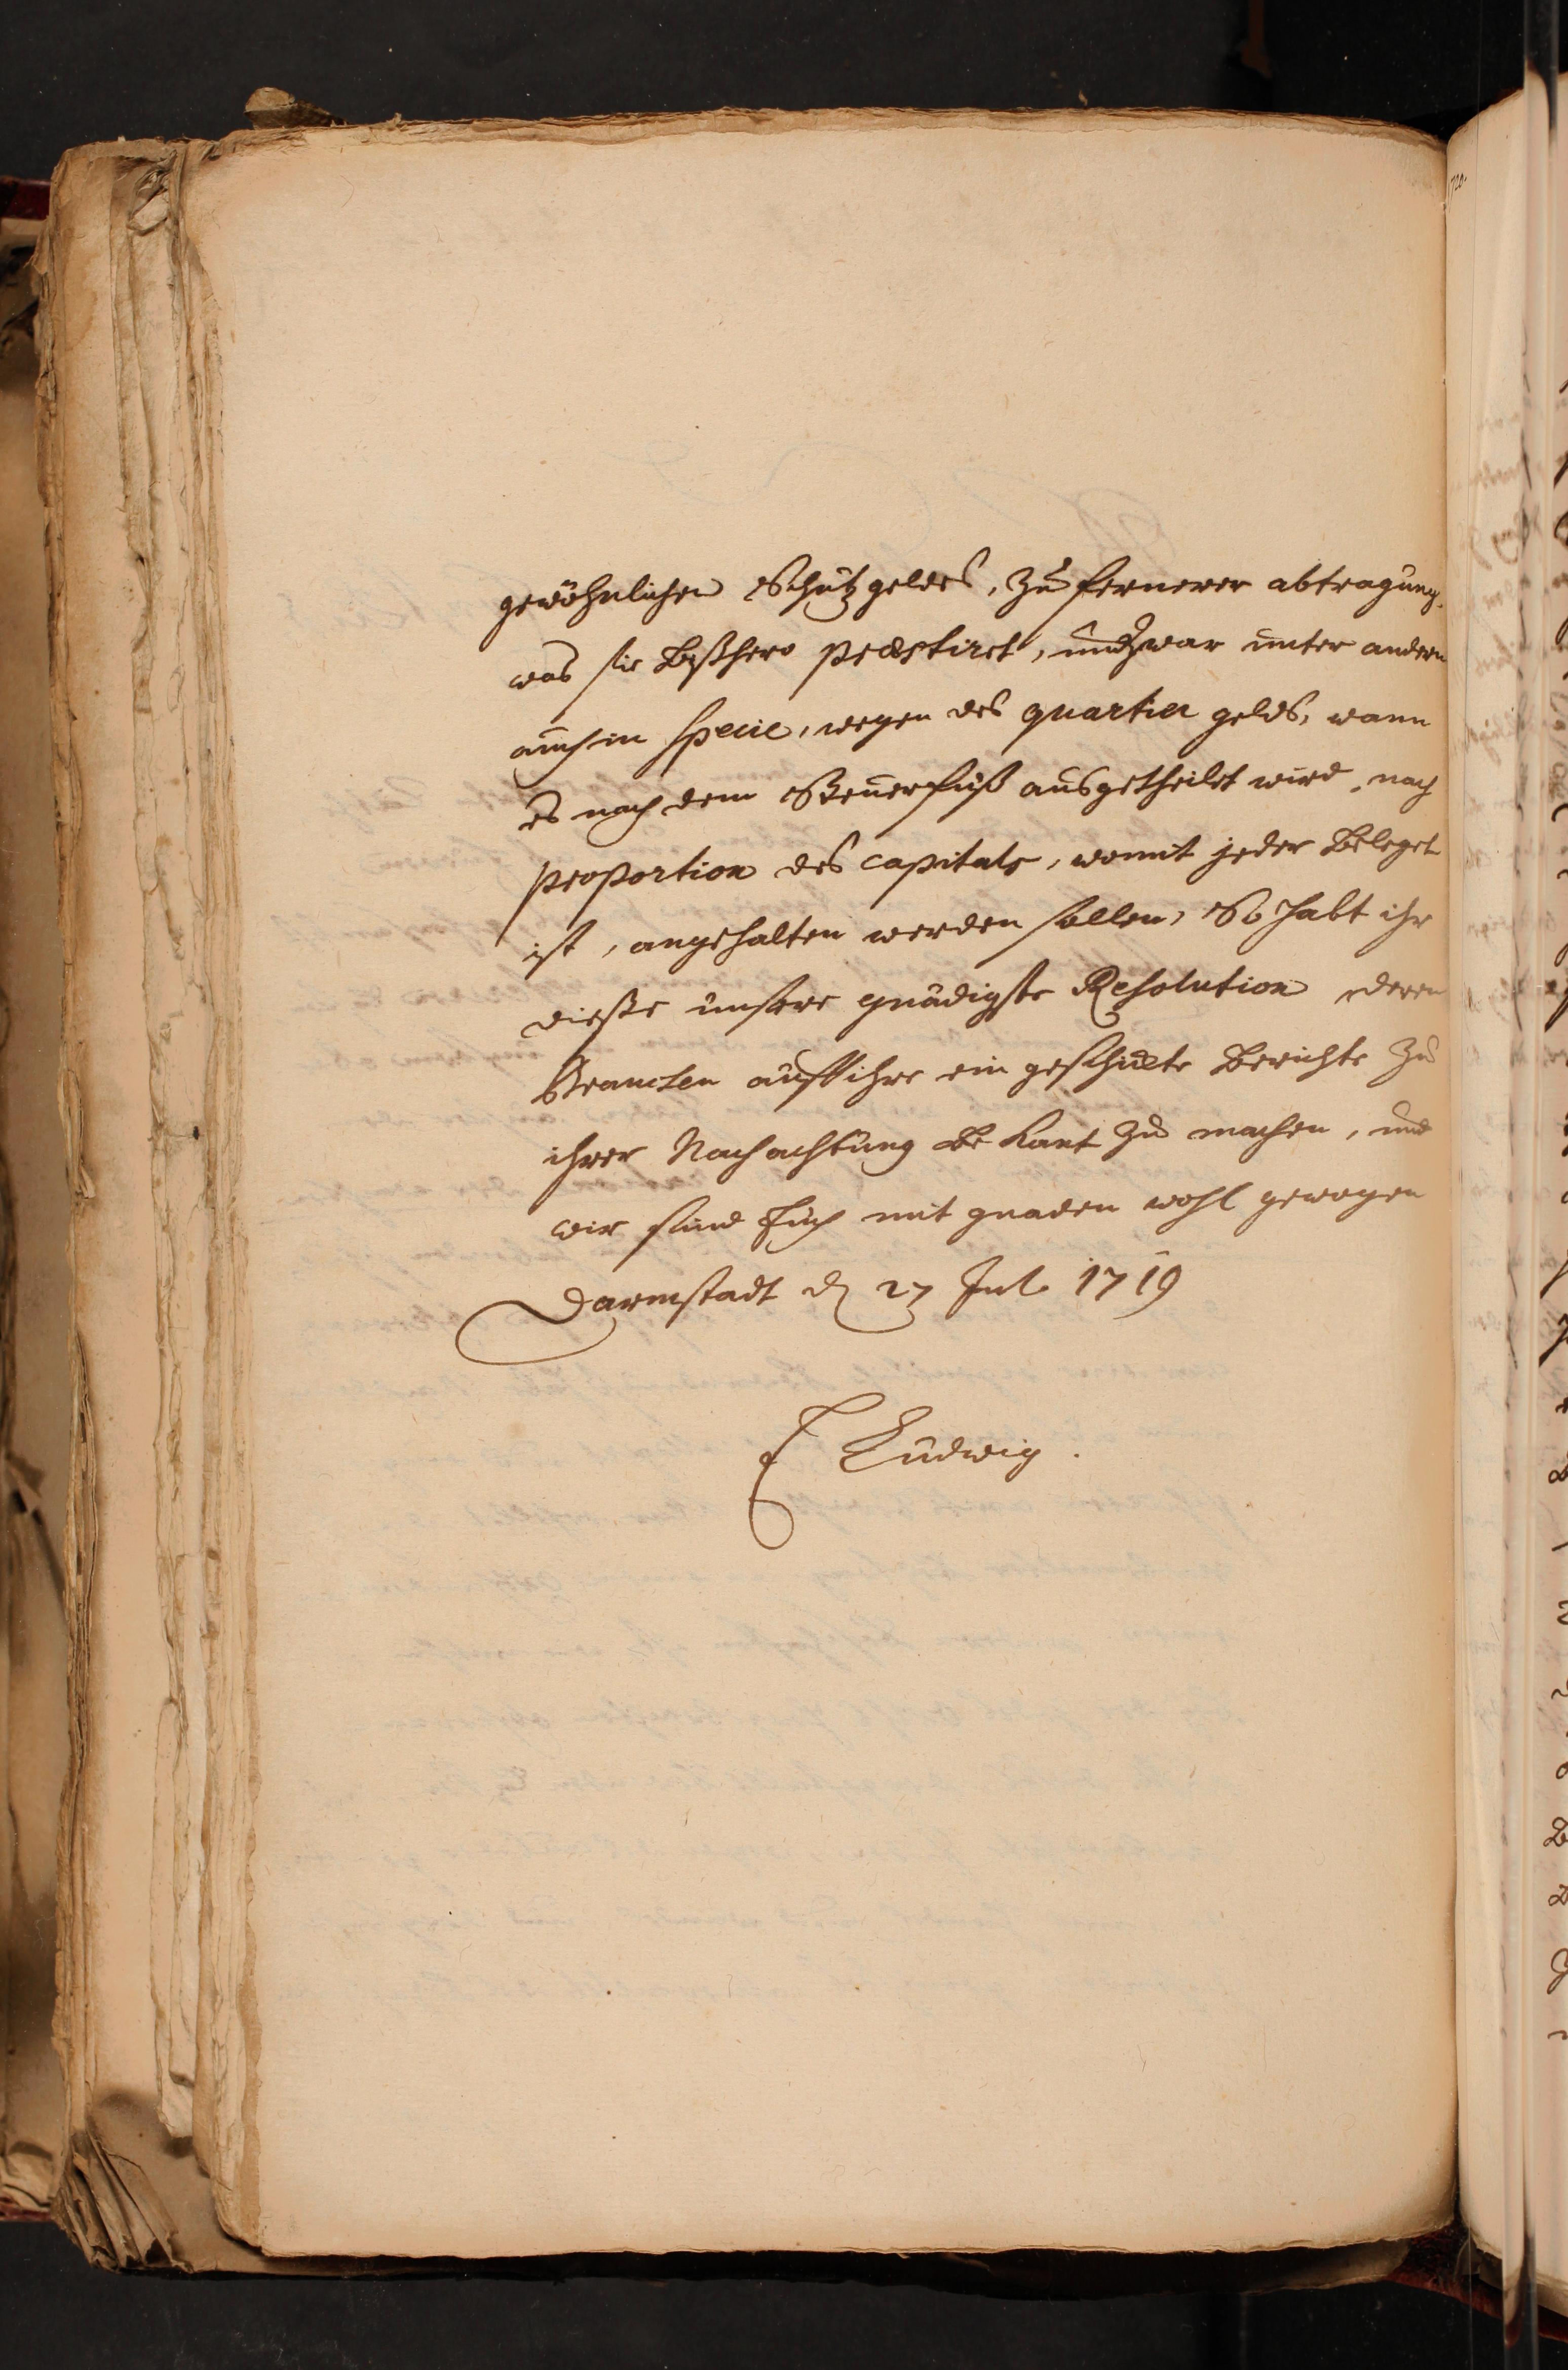 gewöhnlichen Schutzgeldes, zu fernerer abtragung,
was sie bißhero præstiret, und zwar unter andern
auch in specie, wegen des quartier gelds, wann
es nach dem Steuerfuß ausgetheilet wird, nach
proportion des capitals, womit jeder beleget
ist, angehalten werden sollen, So habt ihr
dieße unsere gnädigste Resolution denen
Beamten auff ihre ein geschickte Berichte zu
ihrer Nachachtung bekant zu machen, und
wir sind Euch mit gnaden wohl gewogen
Darmstadt d 27 Jul 1719
E Ludwig.
1720.